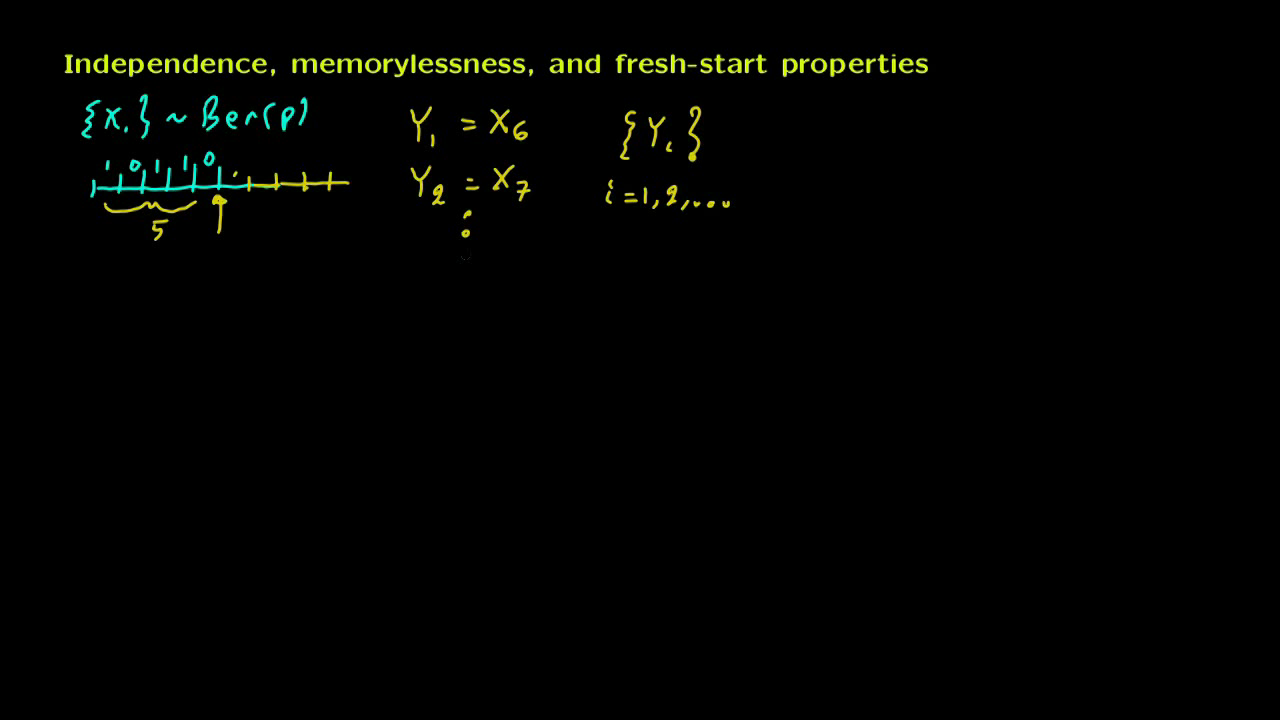 Independence, memorylessness, and fresh-start properties
{X.} ~ Ber(p)
1 0 1 1 0
5
Y₁ = X₆
Y₂ = X₇
⋮
{Yᵢ}
i = 1, 2, ...